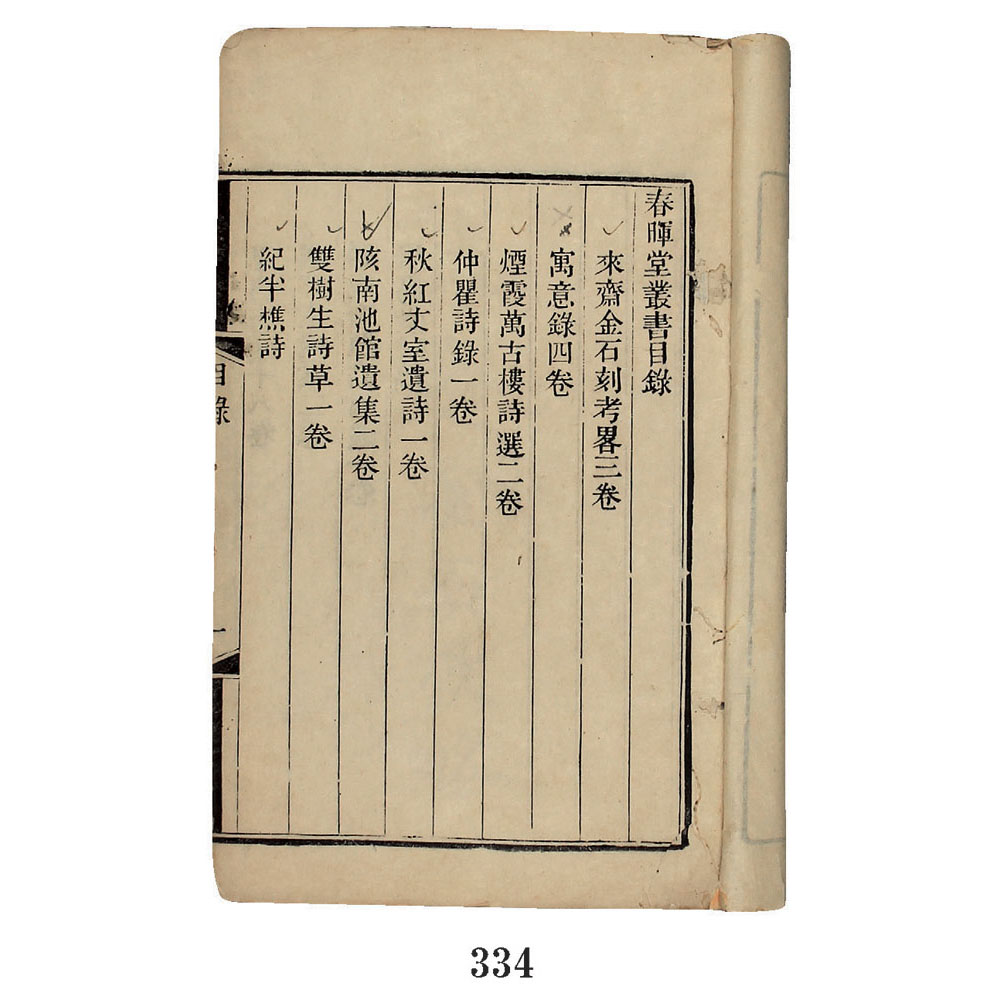 春暉堂叢書目錄
來齋金石刻考畧三卷
寓意錄四卷
煙霞萬古樓詩選二卷
仲瞿詩錄一卷
秋紅丈室遺詩一卷
陔南池館遺集二卷
雙樹生詩草一卷
紀半樵詩
目錄
一
334